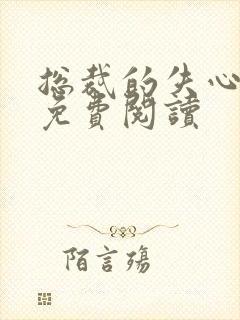 总裁的失心
免費閱讀
陌言殇